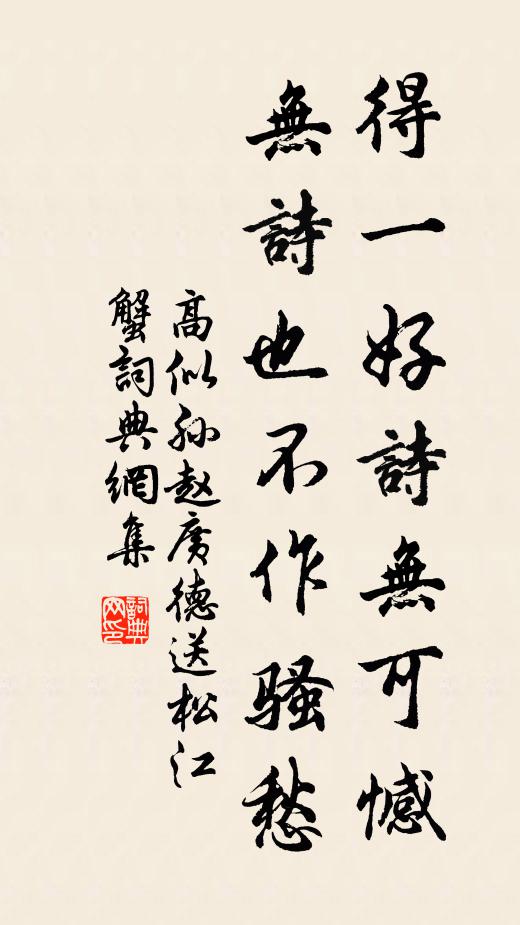 得一好詩無可憾
無詩也不作騷愁
高似孙赵廣德送松江
蟹詞典網集
詞典网印